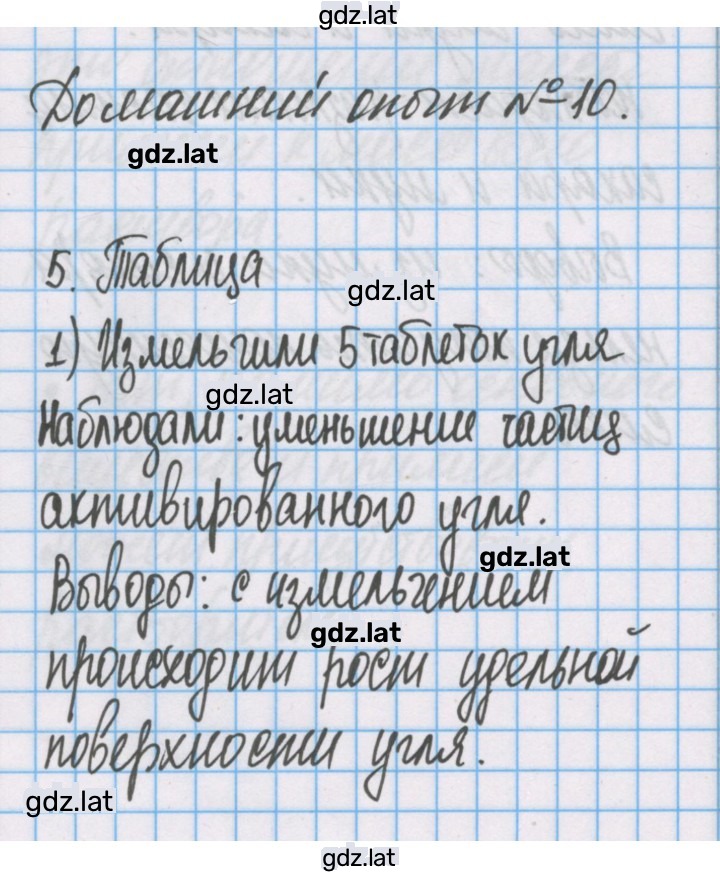 gdz.lat
Домашний опыт №10.
gdz.lat
5. Таблица
gdz.lat
1) Измельчили 5 таблеток угля
gdz.lat
Наблюдали: уменьшение частиц
активированного угля.
gdz.lat
Выводы: с измельчением
gdz.lat
происходит рост удельной
поверхности угля.
gdz.lat
gdz.lat